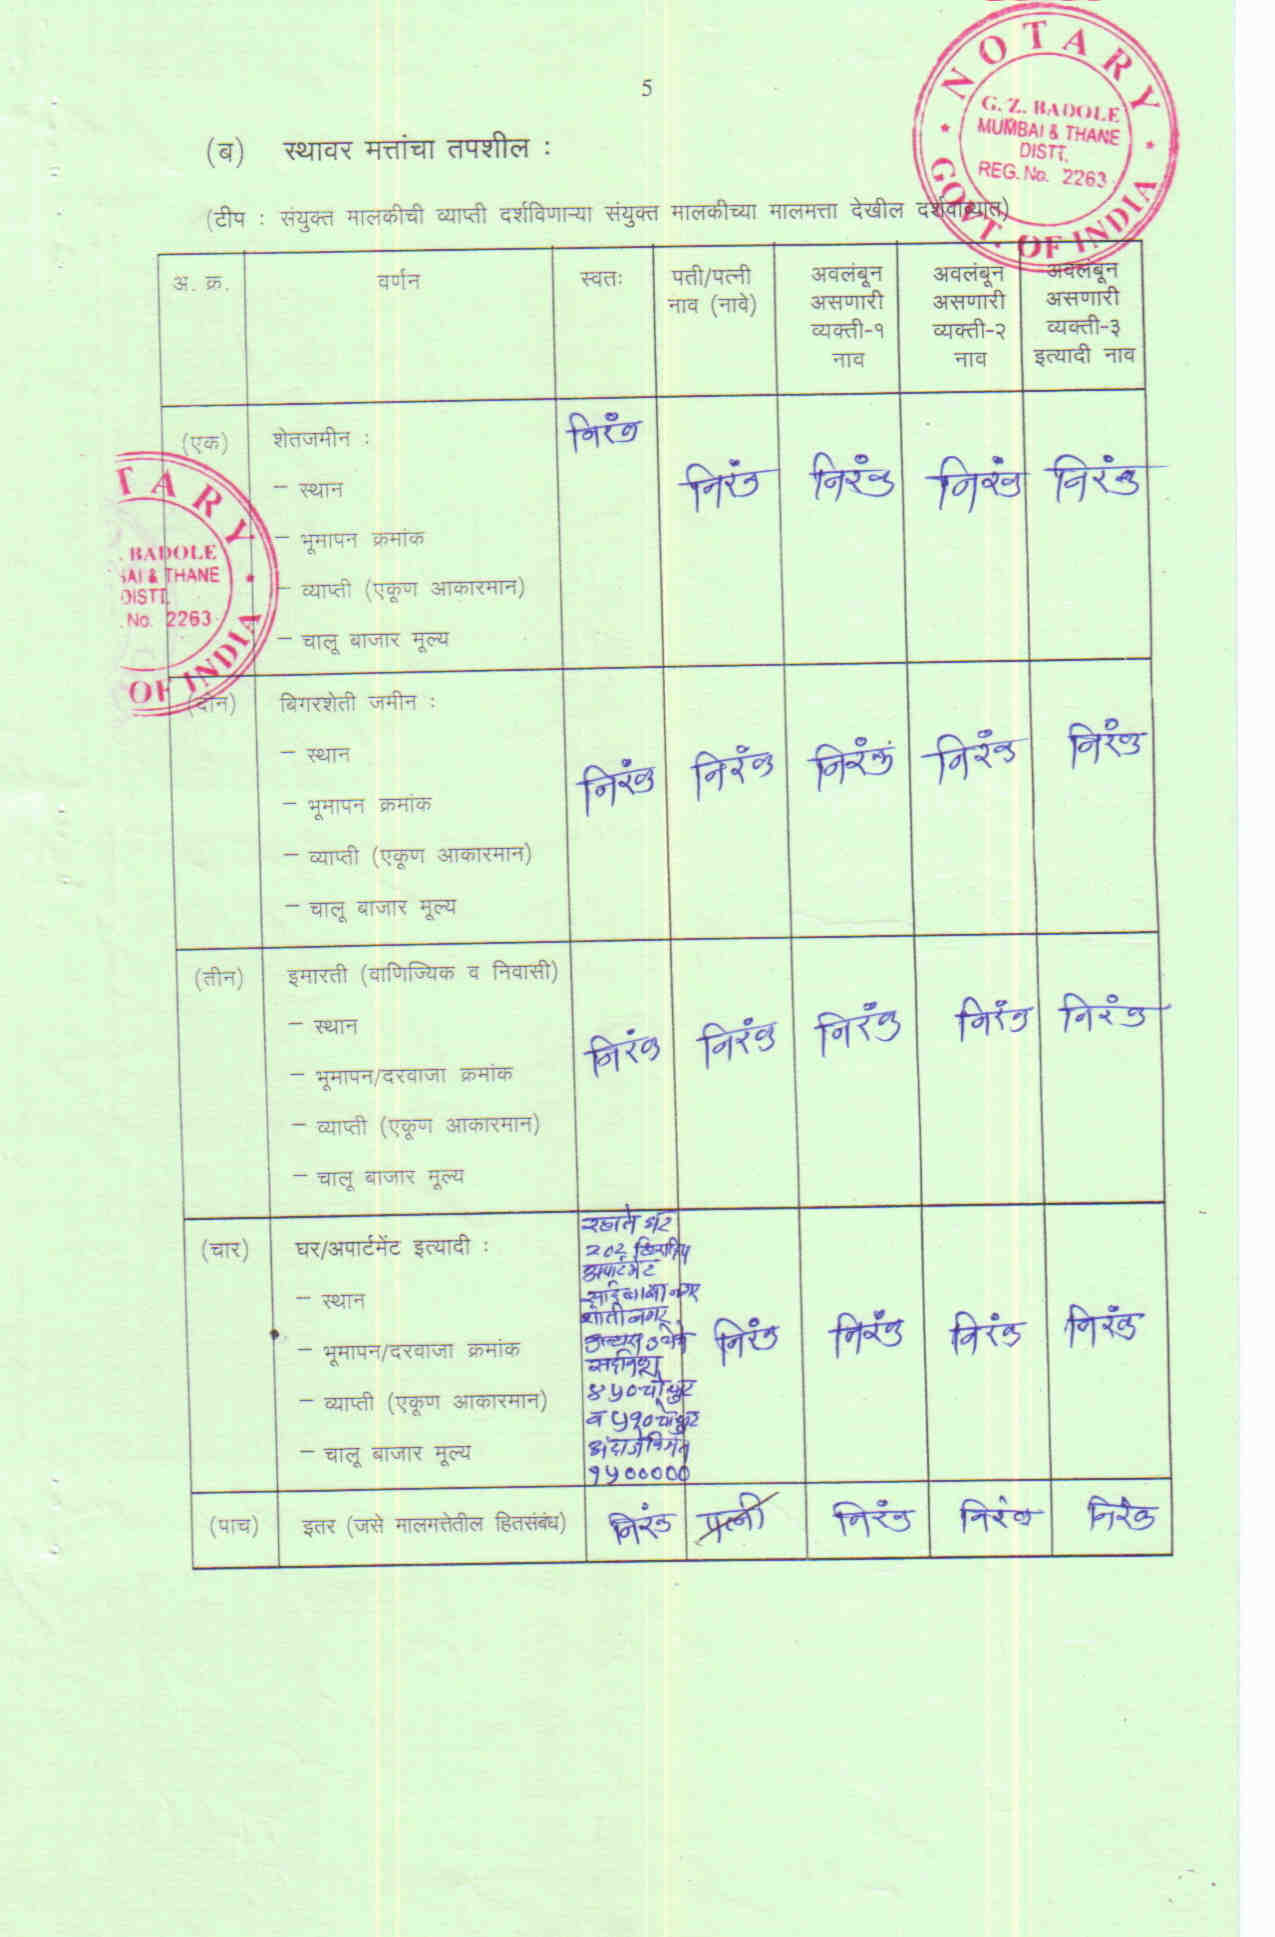 5
NOTARY
G. Z. BADOLE
MUMBAI & THANE
DISTT.
REG. No. 2263
GOVT. OF INDIA
(ब) स्थावर मत्तांचा तपशील :
(टीप : संयुक्त मालकीची व्याप्ती दर्शविणाऱ्या संयुक्त मालकीच्या मालमत्ता देखील दर्शवाव्यात)
अ. क्र. वर्णन स्वतः पती/पत्नी नाव (नावे) अवलंबून असणारी व्यक्ती-१ नाव अवलंबून असणारी व्यक्ती-२ नाव अवलंबून असणारी व्यक्ती-३ इत्यादी नाव
(एक) शेतजमीन : निरंक निरंक निरंक निरंक निरंक
– स्थान
– भूमापन क्रमांक
– व्याप्ती (एकूण आकारमान)
– चालू बाजार मूल्य
TARY
. BADOLE
BAI & THANE
DISTT.
. No. 2263
OF INDIA
(दोन) बिगरशेती जमीन :
– स्थान
निरंक निरंक निरंक निरंक निरंक
– भूमापन क्रमांक
– व्याप्ती (एकूण आकारमान)
– चालू बाजार मूल्य
(तीन) इमारती (वाणिज्यिक व निवासी)
– स्थान
निरंक निरंक निरंक निरंक निरंक
– भूमापन/दरवाजा क्रमांक
– व्याप्ती (एकूण आकारमान)
– चालू बाजार मूल्य
(चार) घर/अपार्टमेंट इत्यादी :
– स्थान
– भूमापन/दरवाजा क्रमांक
– व्याप्ती (एकूण आकारमान)
– चालू बाजार मूल्य
रहाते घर
२०२
अपार्टमेंट
साईबाबा नगर
शांतीनगर
सदनिका
४५० चौ फुट
व ५१० चौ फुट
अंदाजे किंमत
१५०००००
निरंक निरंक निरंक निरंक
(पाच) इतर (जसे मालमत्तेतील हितसंबंध) निरंक पत्नी निरंक निरंक निरंक